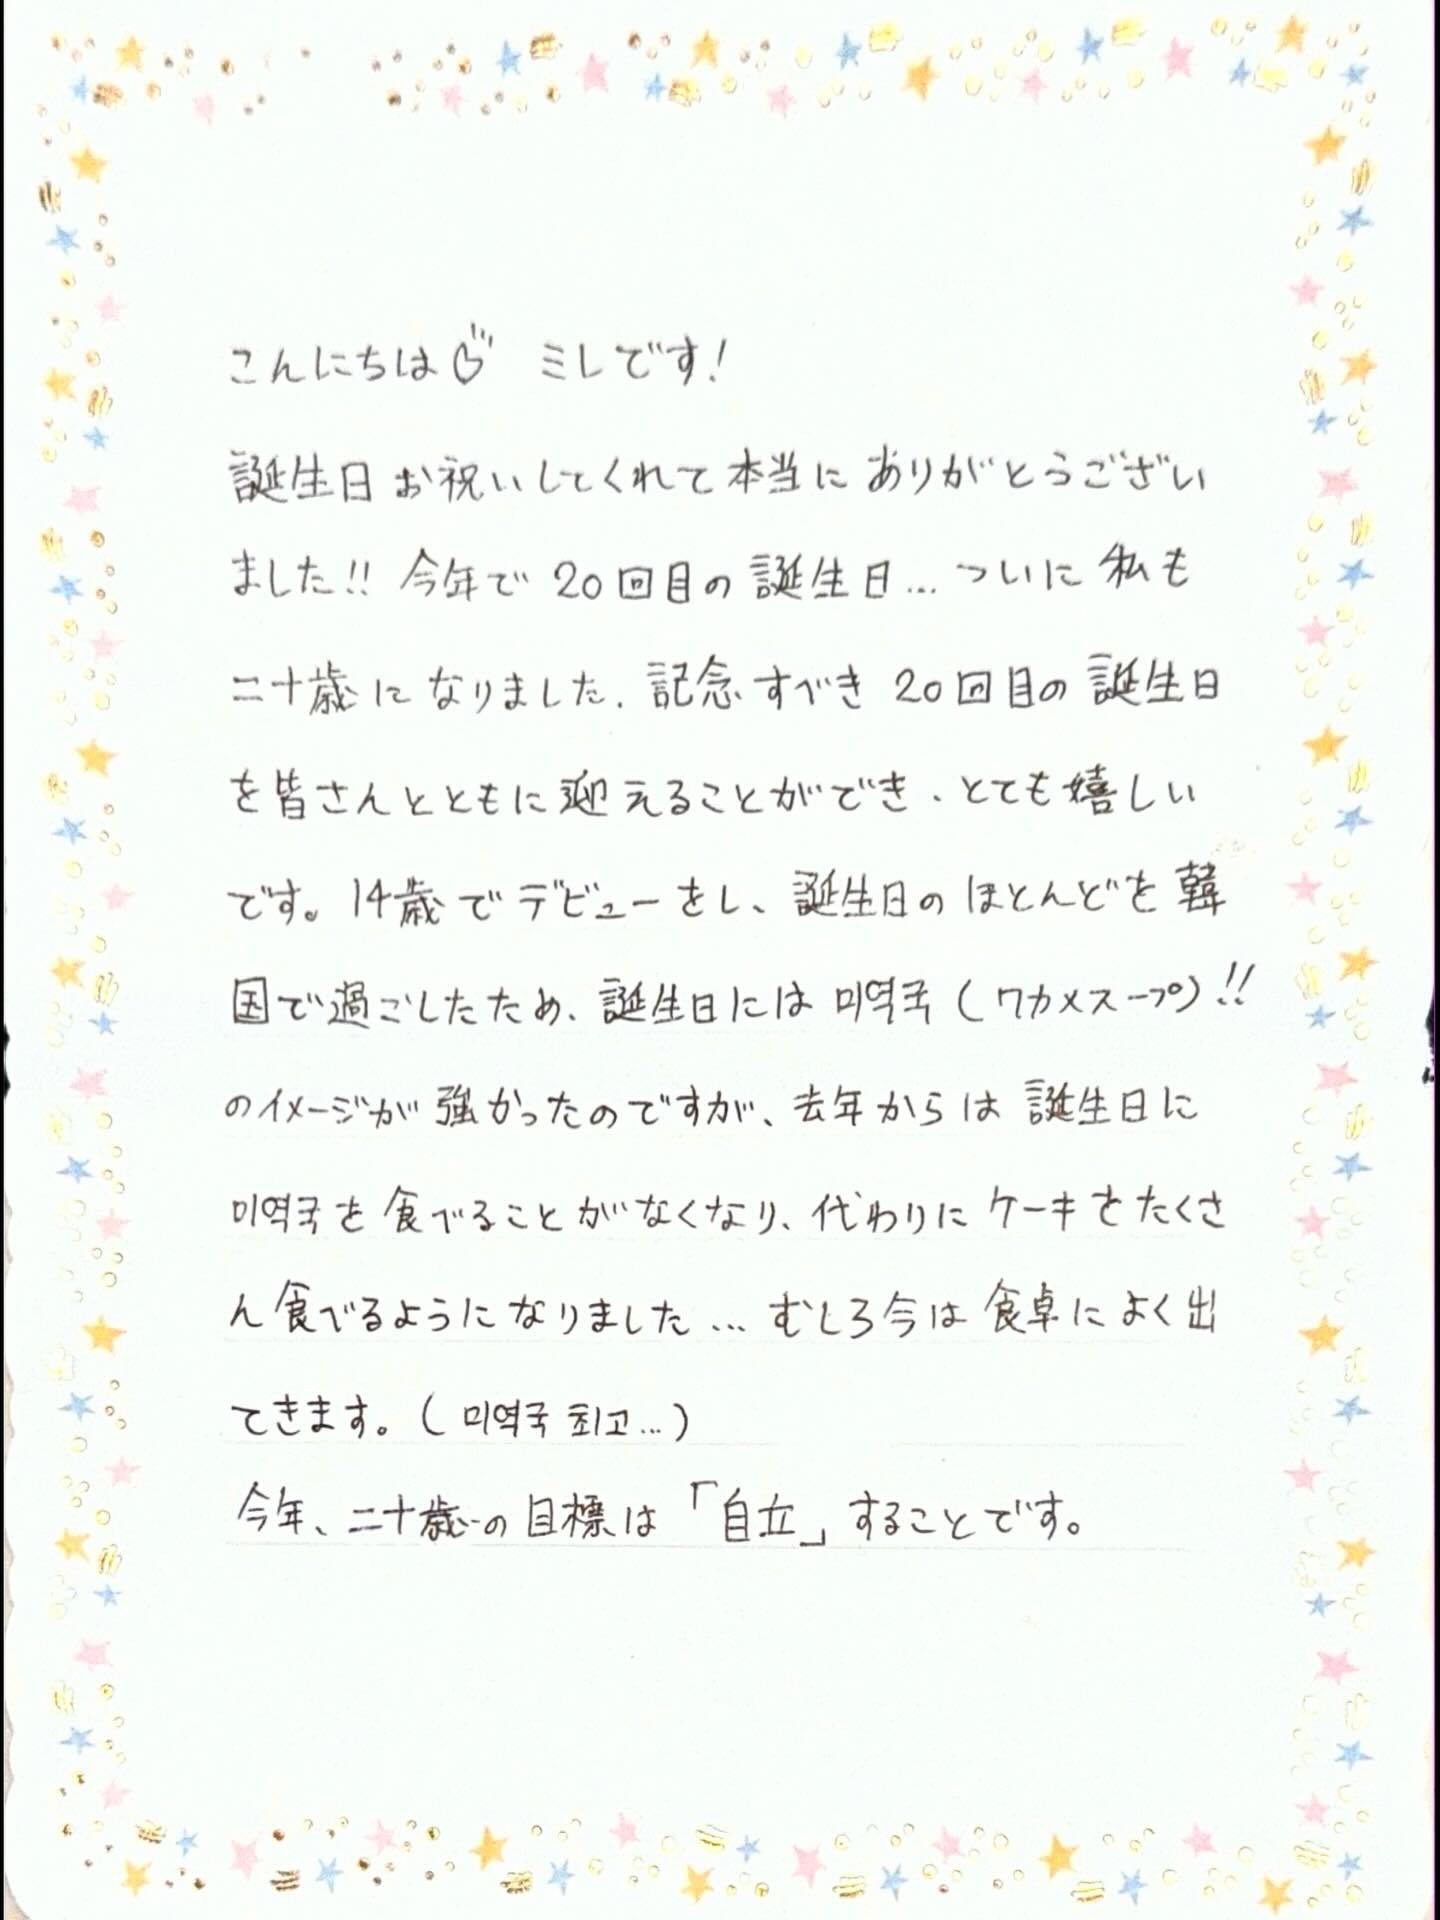 こんにちは♡ ミレです!
誕生日お祝いしてくれて本当にありがとうござい
ました!! 今年で20回目の誕生日...ついに私も
二十歳になりました. 記念すべき20回目の誕生日
を皆さんとともに迎えることができ、とても嬉しい
です。14歳でデビューをし、誕生日のほとんどを韓
国で過ごしたため、誕生日には미역국(ワカメスープ)!!
のイメージが強かったのですが、去年からは誕生日に
미역국を食べることがなくなり、代わりにケーキをたくさ
ん食べるようになりました...むしろ今は食卓によく出
てきます。(미역국 최고...)
今年、二十歳の目標は「自立」することです。